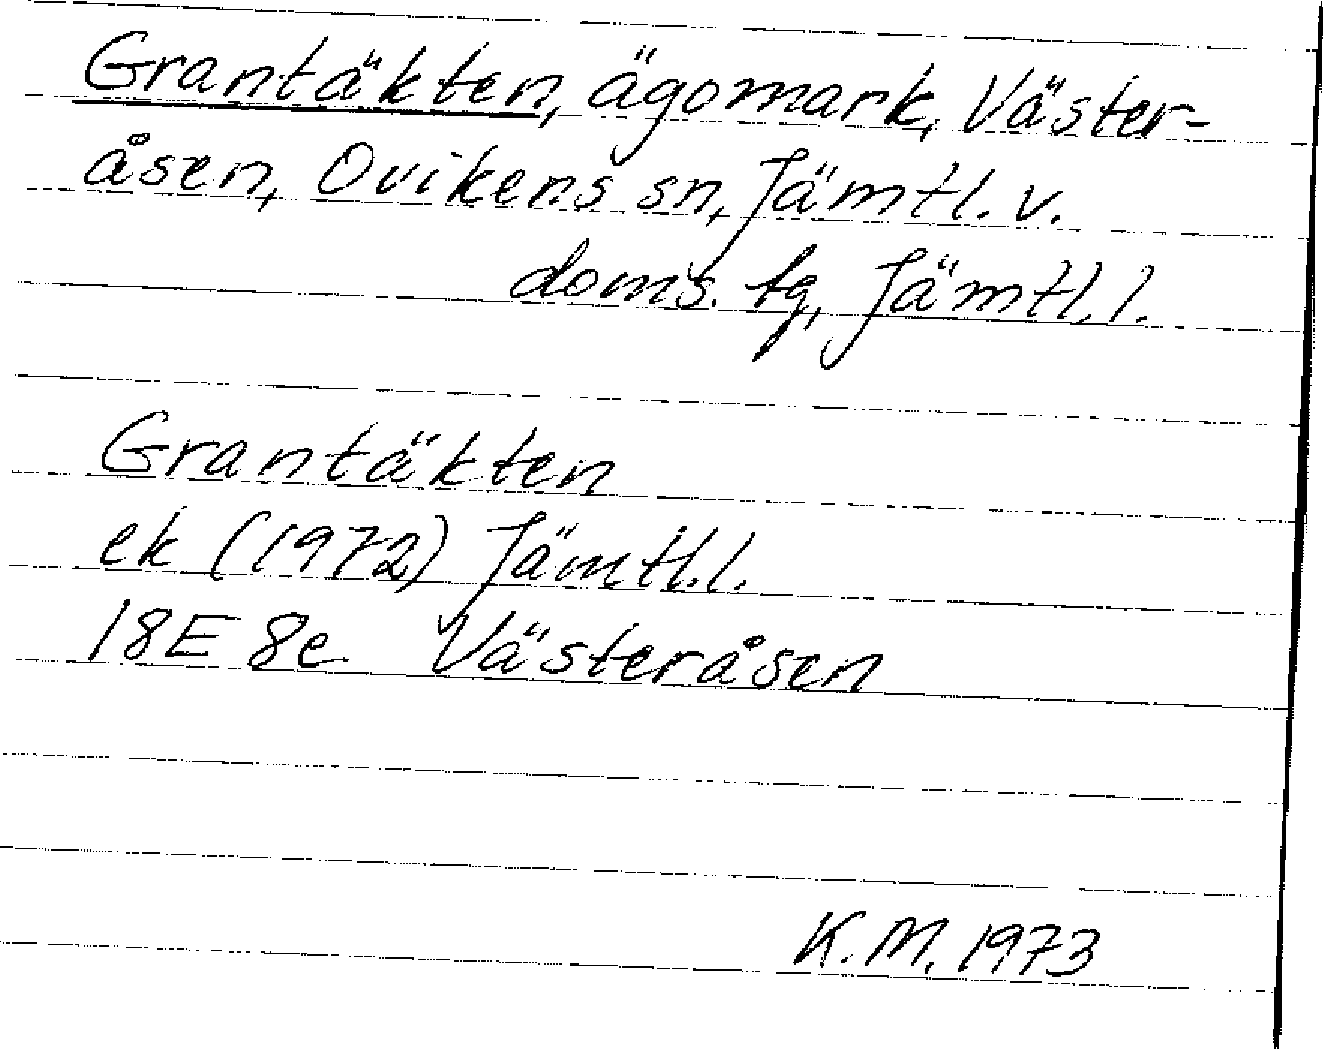 Grantäkten, ägomark, Väster-
åsen, Ovikens sn, Jämtl. v.
doms. tg, Jämtl. l.
Grantäkten
ek (1972) Jämtl. l.
18E 8e Västeråsen
K.M. 1973